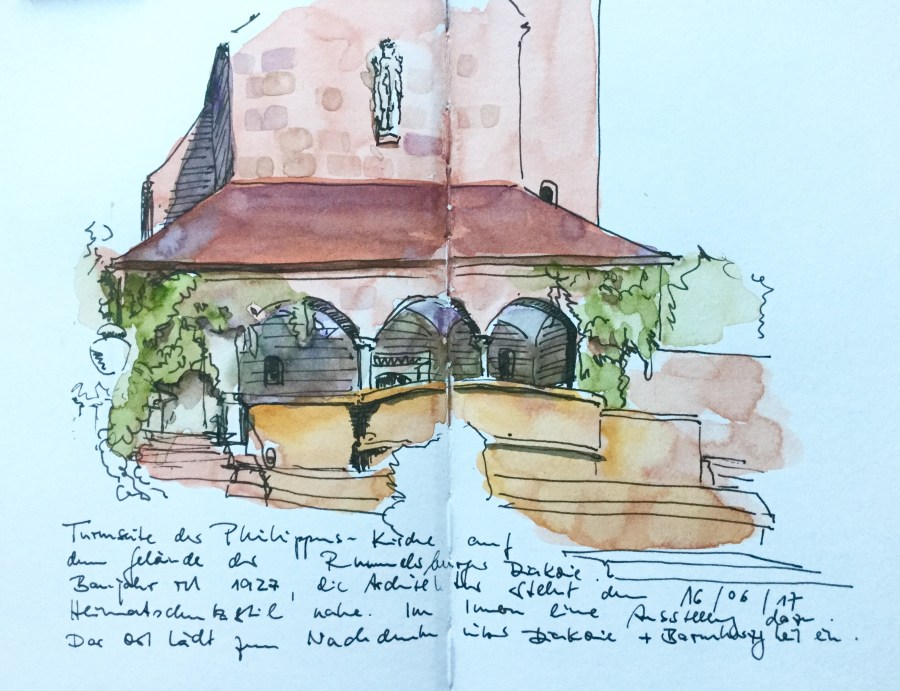 Turmseite der Philippus-Kirche auf
dem Gelände der Rummelsburger Diakonie.
Baujahr ist 1927, die Architektur steht dem 16/06/17
Heimatschutzstil nahe. Im Innern eine Ausstellung dazu.
Der Ort lädt zum Nachdenken über Diakonie + Barmherzigkeit ein.